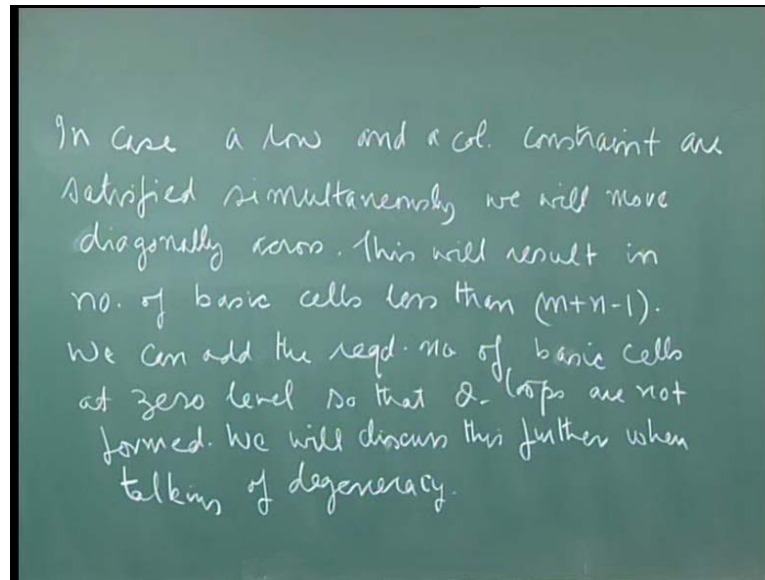 In case a row and a col. constraint are
satisfied simultaneously we will move
diagonally across. This will result in
no. of basic cells less than (m+n-1).
We can add the reqd. no of basic cells
at zero level so that θ-loops are not
formed. We will discuss this further when
talking of degeneracy.